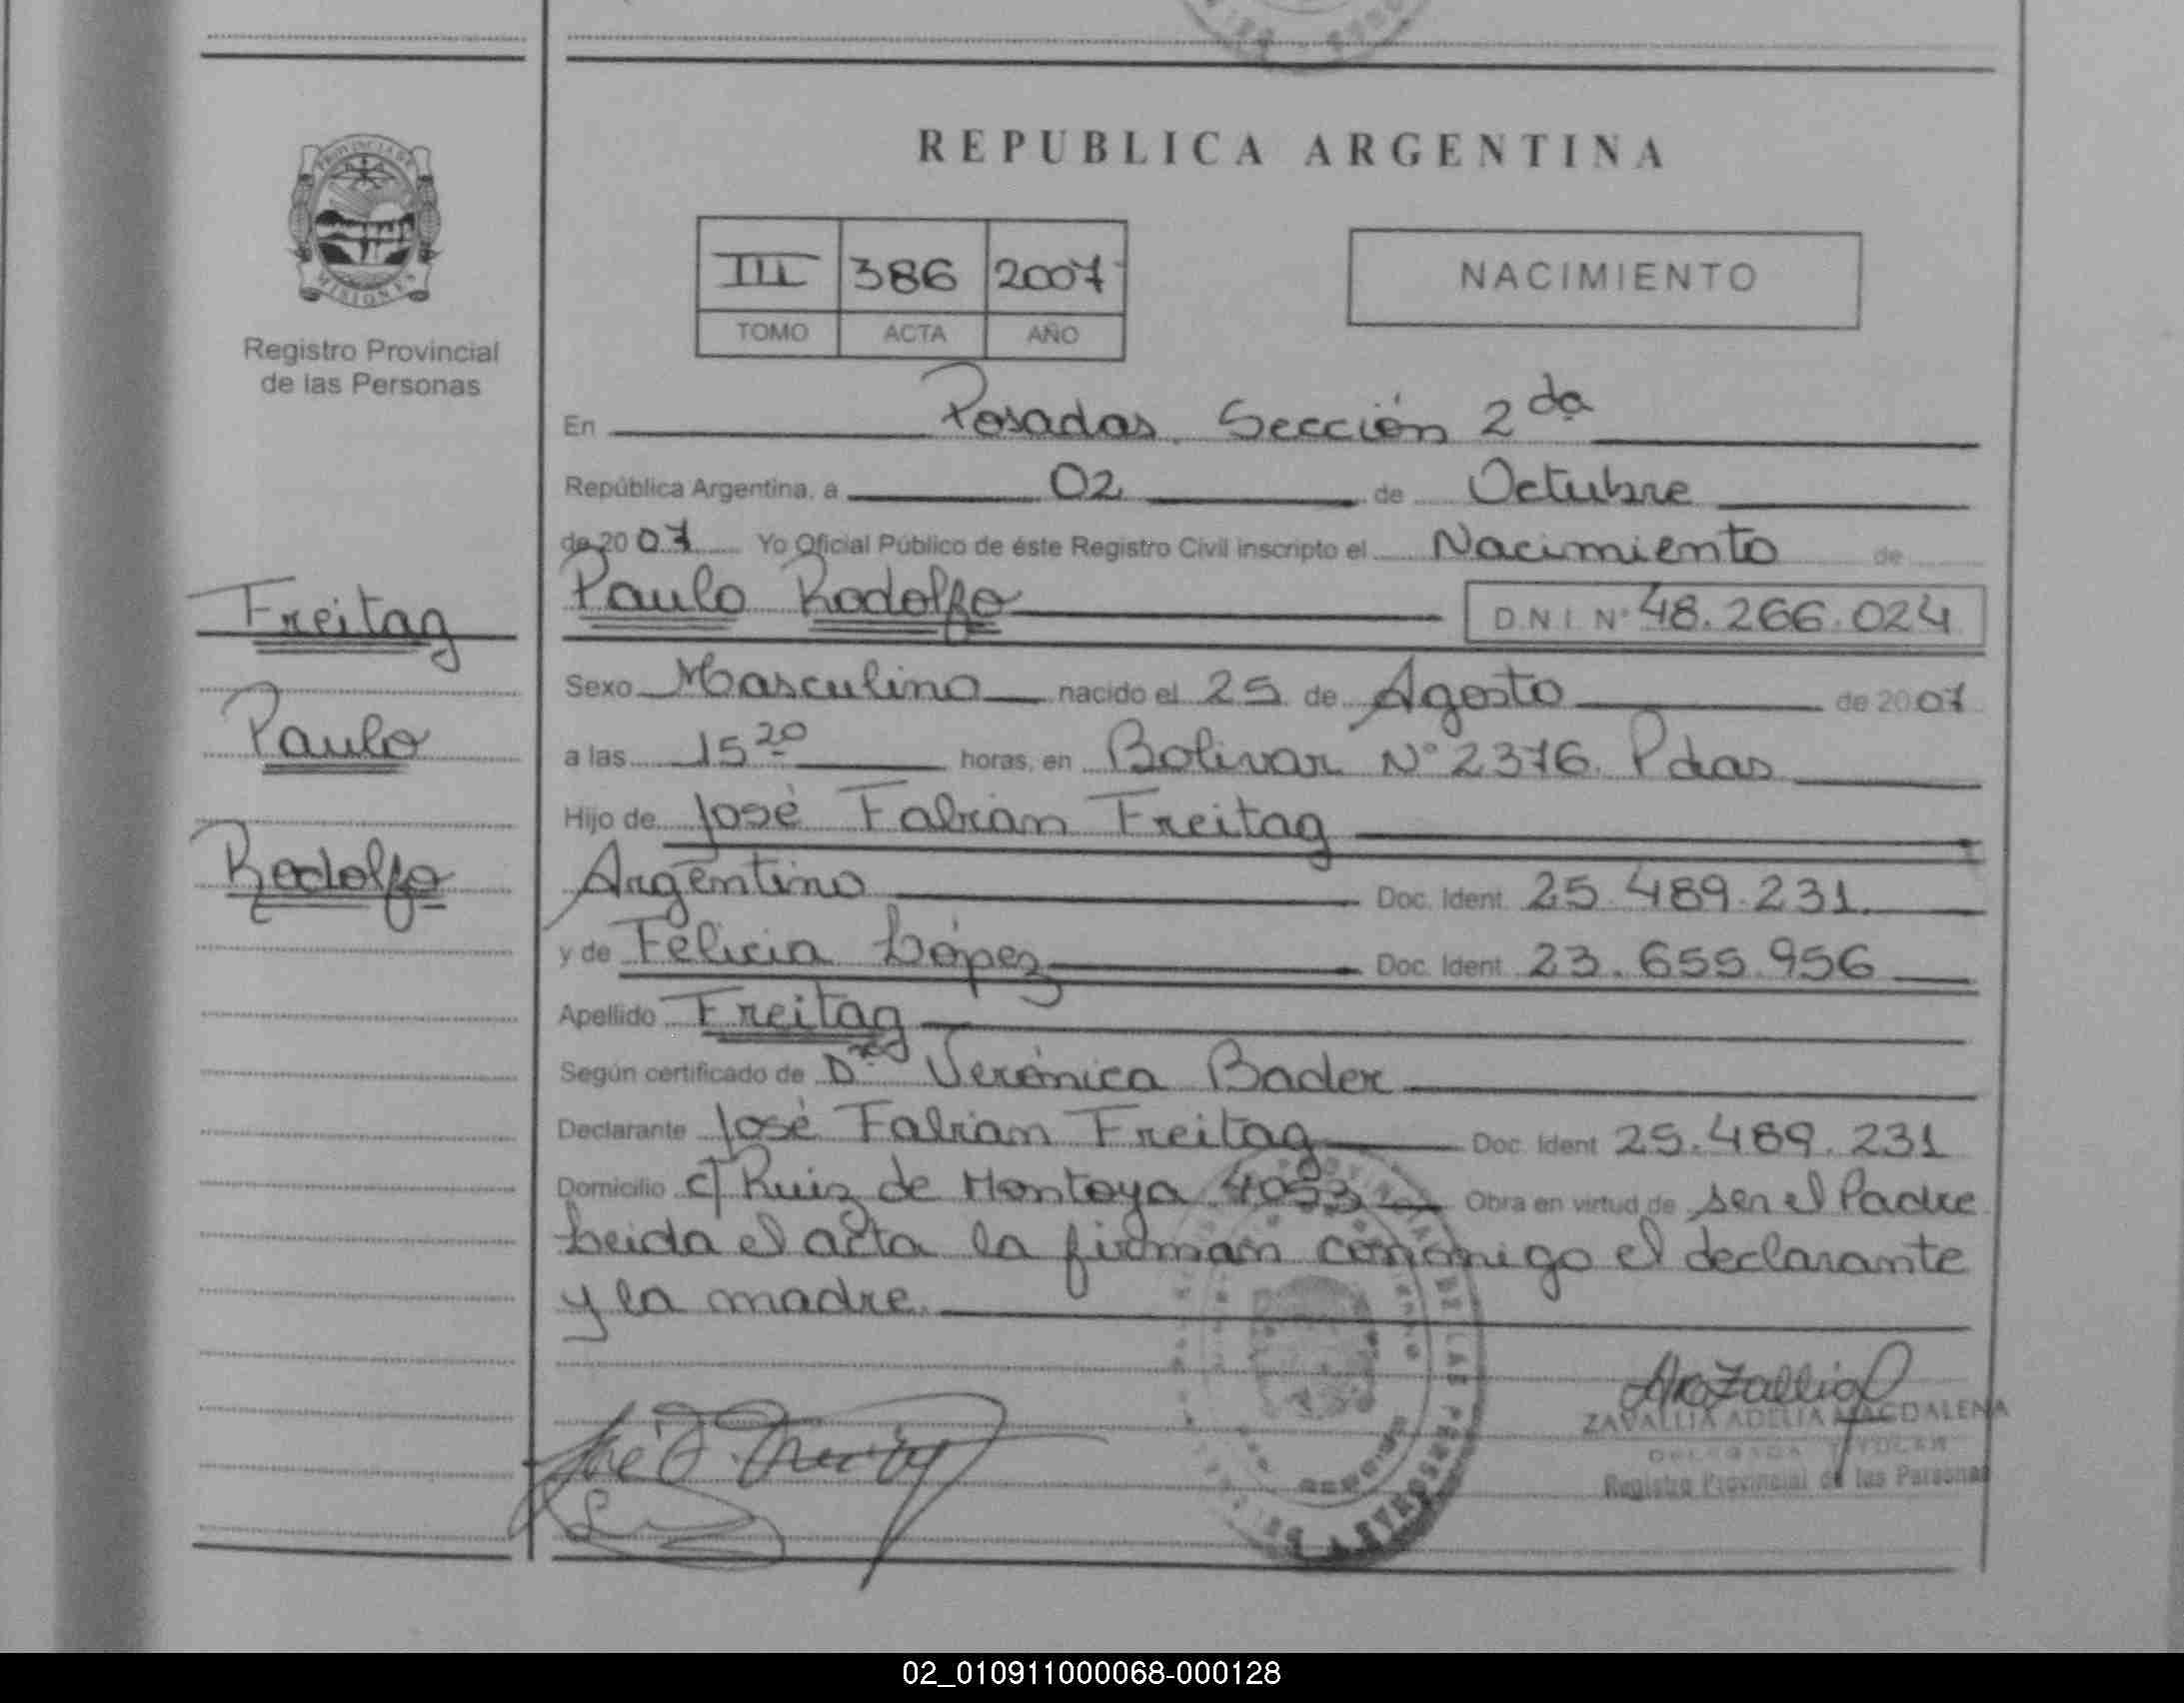 REPUBLICA ARGENTINA
PROVINCIA DE
MISIONES
Registro Provincial
de las Personas
III 386 2007
TOMO ACTA AÑO
NACIMIENTO
En Posadas. Sección 2da
República Argentina, a 02 de Octubre
de 2007 Yo Oficial Público de éste Registro Civil inscripto el Nacimiento de
Freitag
Paulo Rodolfo D.N.I. Nº 48.266.024
Sexo Masculino nacido el 25 de Agosto de 2007
Paulo
a las 15 20 horas, en Bolivar Nº 2376. Pdas
Hijo de José Fabian Freitag
Rodolfo
Argentino Doc. Ident. 25.489.231.
y de Felicia López Doc. Ident. 23.655.956
Apellido Freitag
Según certificado de Dra Verónica Bader
Declarante José Fabian Freitag Doc. Ident 25.489.231
Domicilio c/ Ruiz de Montoya 4053 Obra en virtud de ser el Padre
Leida el acta la firman conmigo el declarante
y la madre.
DE LAS PERSONAS
ZAVALLIA ADELIA MAGDALENA
DELEGADA TITULAR
Registro Provincial de las Personas
02_010911000068-000128